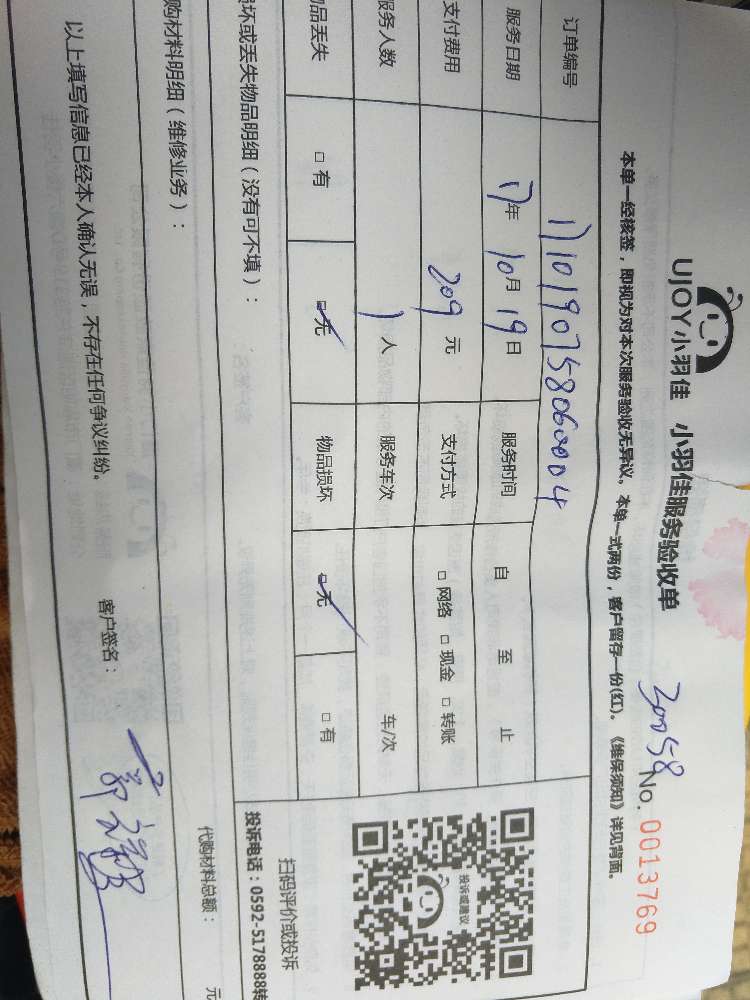 UJOY小羽佳 小羽佳服务验收单
30058
No. 0013769
本单一经核签，即视为对本次服务验收无异议。本单一式两份，客户留存一份(红)。《维保须知》详见背面。
订单编号 17101907580600004
服务日期 17年 10月 19日 服务时间 自 至 止
支付费用 209元 支付方式 □网络 □现金 □转账
服务人数 1人 服务车次 车/次
物品丢失 □有 □无 物品损坏 □无 □有
损坏或丢失物品明细（没有可不填）：
投诉或建议
扫码评价或投诉
投诉电话：0592-5178888转
购材料明细（维修业务）：
代购材料总额： 元
以上填写信息已经本人确认无误，不存在任何争议纠纷。
客户签名：